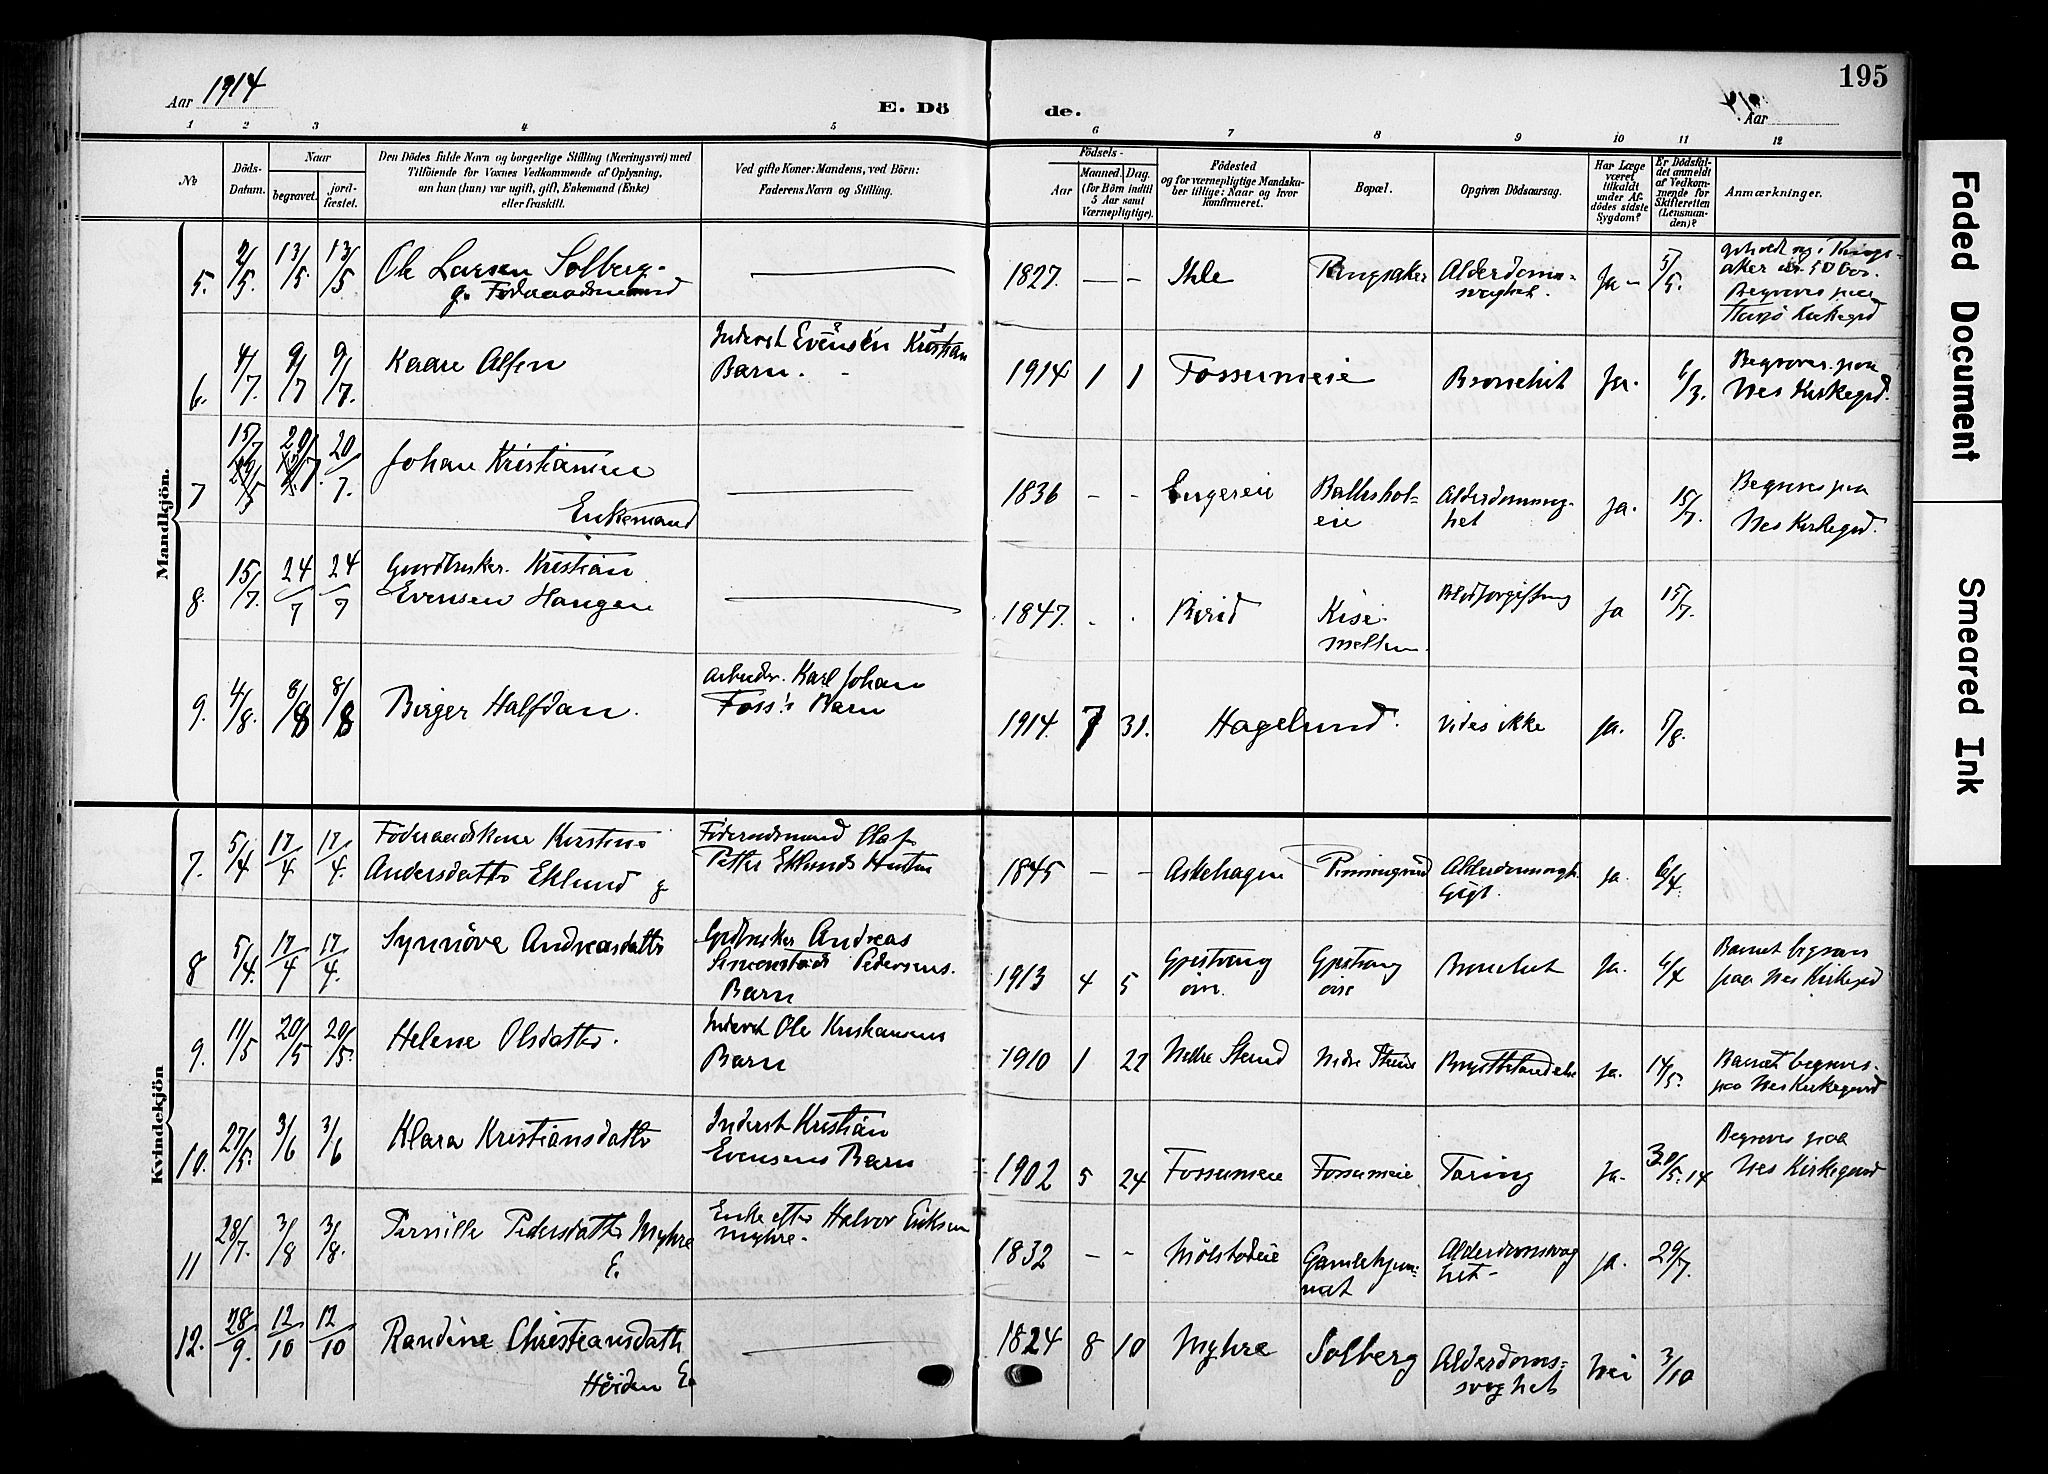 195
Aar 1914
E. Döde.
Aar
1 2 3 4 5 6 7 8 9 10 11 12
№
Döds-
Datum.
Naar
begravet.
jord-
fæstet.
Den Dödes fulde Navn og borgerlige Stilling (Næringsvei) med
Tilföiende for Voxnes Vedkommende af Oplysning,
om han (hun) var ugift, gift, Enkemand (Enke)
eller fraskilt.
Ved gifte Koner: Mandens, ved Börn:
Faderens Navn og Stilling.
Födsels-
Aar
Maaned. Dag.
(for Börn indtil
5 Aar samt
Værnepligtige).
Födested
og for værnepligtige Mandska-
ber tillige: Naar og hvor
konfirmeret.
Bopæl.
Opgiven Dödsaarsag.
Har Læge
været
tilkaldt
under Af-
dödes sidste
Sygdom?
Er Dödsfal-
det anmeldt
af Vedkom-
mende for
Skifteretten
(Lensman-
den)?
Anmærkninger.
Mandkjön.
5. 2/5. 13/5. 13/5 Ole Larsen Solberg.
g. Föderaadsmand
1827. — — Ihle Ringsaker Alderdoms-
svaghet. Ja - 5/5.
aker
50
Begraves paa
Kirkegrd
6. 4/7. 9/7 9/7. Kaare Alfen
Inderst Evensen Kristian
Barn.
1914 1 1 Fossumeie Bronchit Ja. 6/3.
Begraves paa
Nes Kirkegrd.
7 15/7 20/7 20/7. Johan Kristiansen
Enkemand
1836 - - Engereie Balkshol-
eie Alderdomssvag-
het ja. 15/7.
Begraves paa
Nes Kirkegrd.
8. 15/7. 24/7 24/7 Gardbruker. Kristian
Evensen Haugen
1847. Birid Kise
mellem. Blodforgiftning Ja 15/7.
9. 4/8. 8/8 8/8 Birger Halfdan.
Arbeider. Karl Johan
Foss's Barn
1914. 7 31. Hagelund. Vides ikke Ja. 5/8.
Kvindekjön
7. 5/4 17/4 17/4. Föderaadskone Kirstine
Andersdatter Eklund g
Föderaadsmand Olaf
Petter Eklunds Hustru
1845 — — Askehagen Alderdomssvagh.
Gigt. Ja. 6/4.
8 5/4. 17/4 17/4. Synnöve Andreasdatter
Grdbruker Andreas
Simenstad Pedersens.
Barn
1913 4 5 Bronchit Ja. 6/4
Barnet begraves
paa Nes Kirkegrd
9. 11/5 20/5 20/5. Helene Olsdatter.
Inderst Ole Kristiansens
Barn
1910 1 22 Nedre Stend Nedre Stend Brystbetændelse Ja. 14/5.
Barnet begraves.
paa Nes Kirkegaard
10. 27/5. 3/6 3/6 Klara Kristiansdatter
Inderst Kristian
Evensens Barn
1902 5 24 Fossumeie Fossumeie Tæring Ja. 30/5. 14
Begraves paa
Nes Kirkegaard
11 28/7. 3/8 3/8. Pernille Pedersdatter Myhre
E.
Enke efter Halvor Eriksen
Myhre.
1832 — - Mölstadeie Gamlehjem-
met Alderdomssvag
het- ja. 29/7.
12. 28/9. 12/10 12/10 Randine Christiansdatter
Höiden E.
1824 8 10 Myhre Solberg Alderdoms-
svaghet Nei 3/10
Faded Document
Smeared Ink